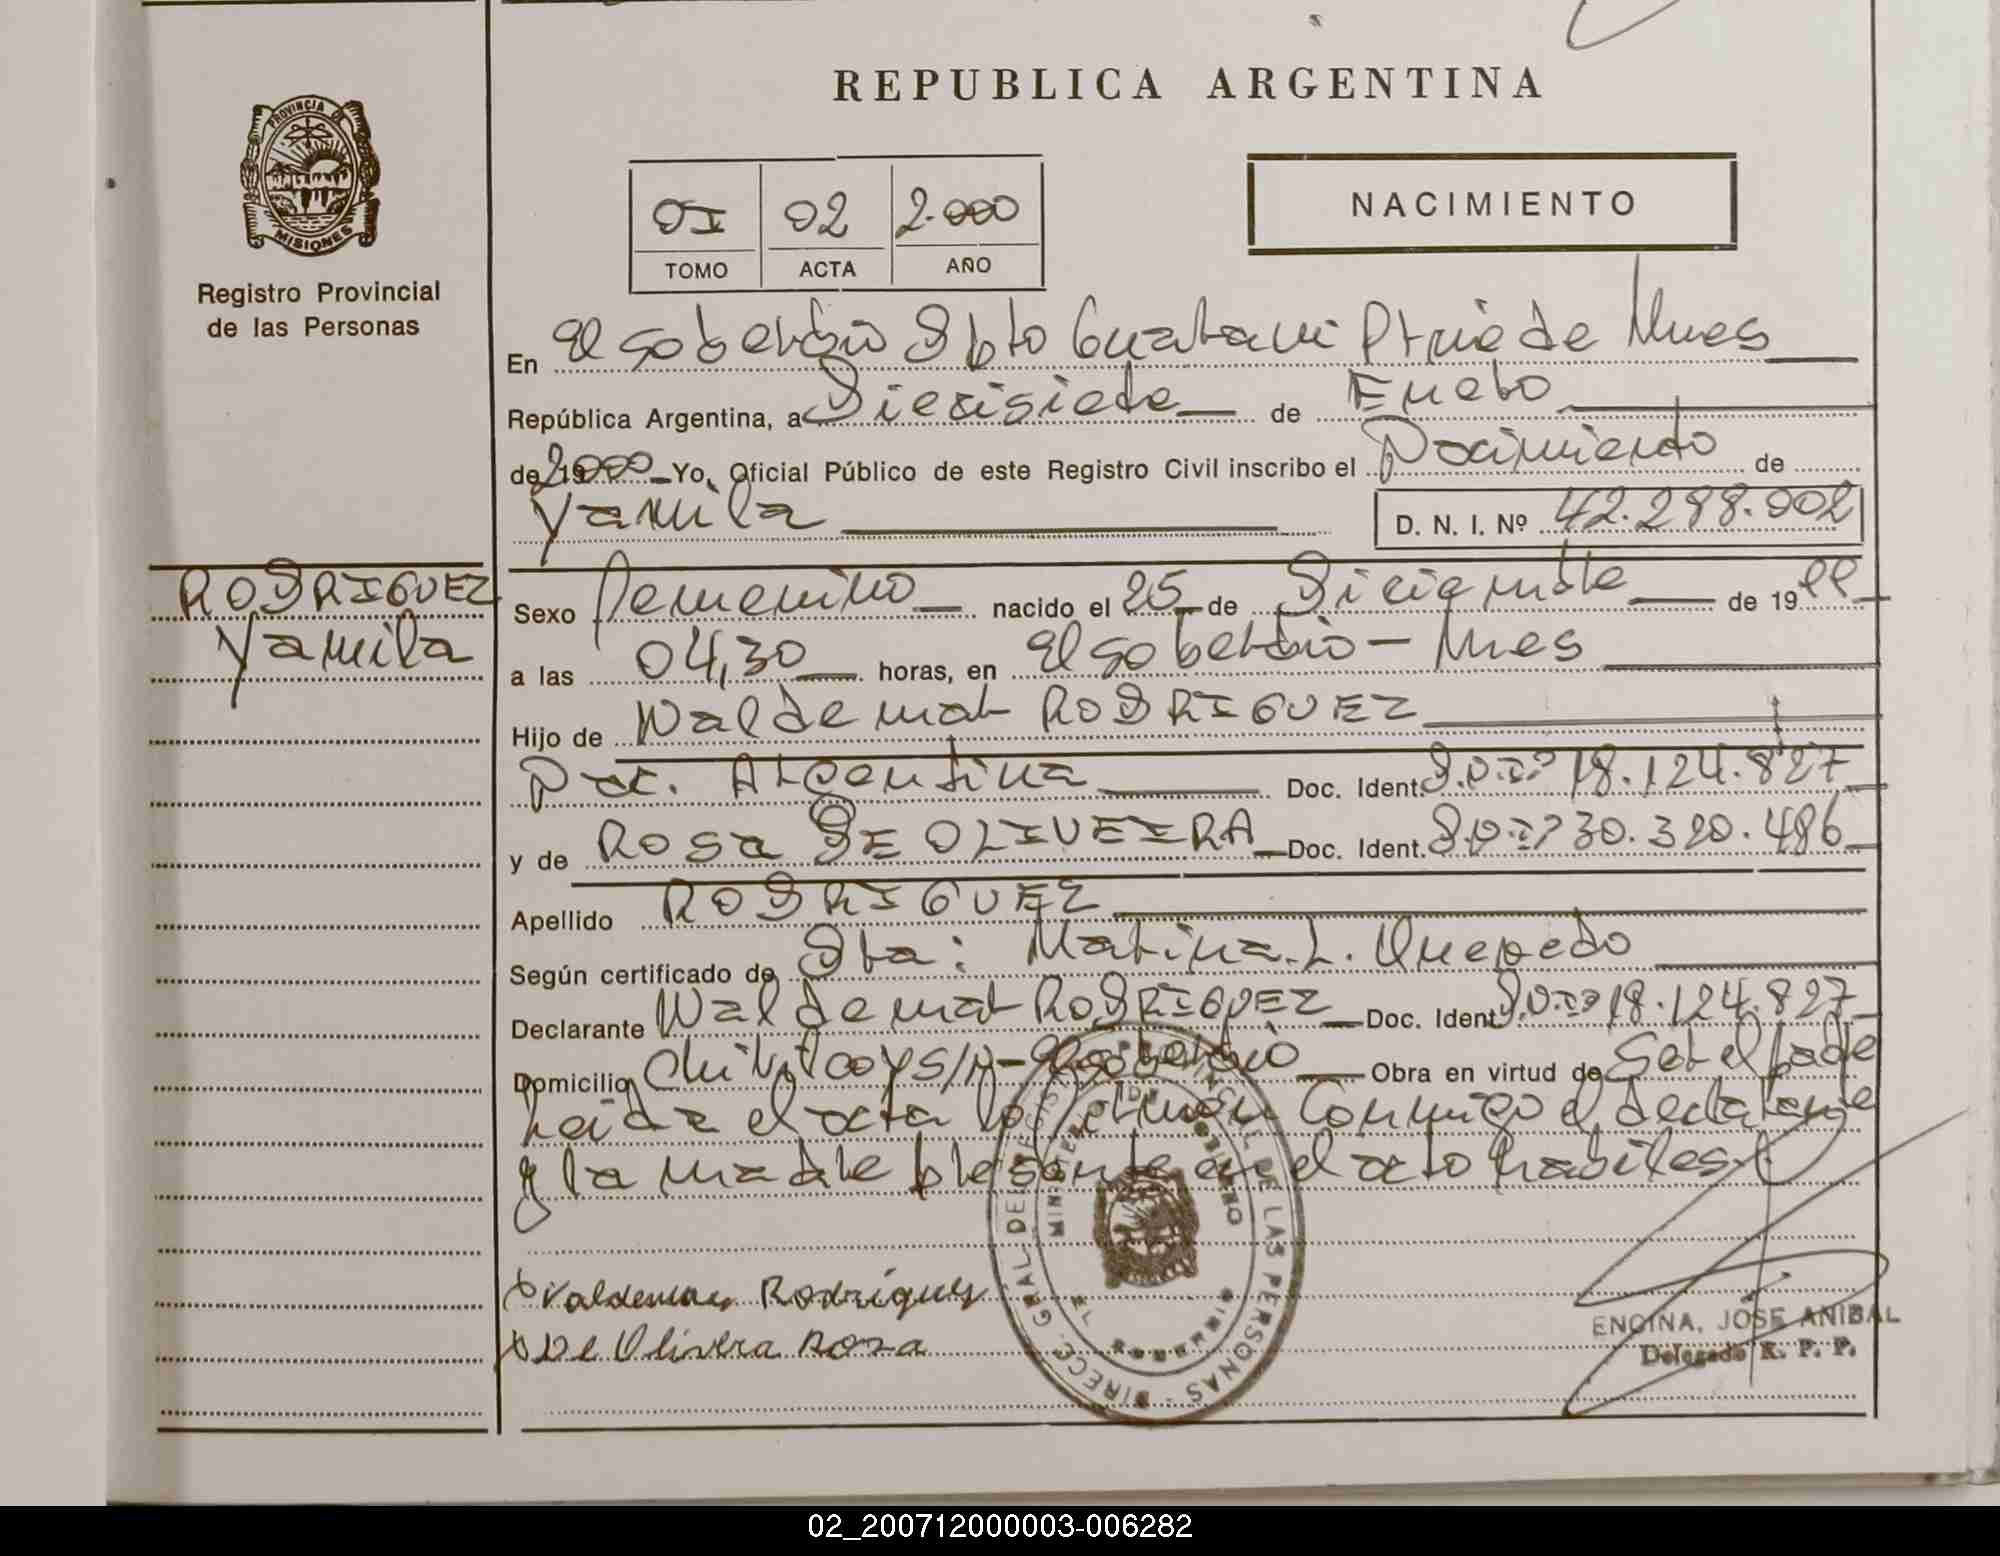 REPUBLICA ARGENTINA
PROVINCIA DE
MISIONES
Registro Provincial
de las Personas
01 02 2.000
TOMO ACTA AÑO
NACIMIENTO
En El Soberbio Dpto Guarani Pcia de Mnes
República Argentina, a Diecisiete de Enero
de 19 2000 Yo, Oficial Público de este Registro Civil inscribo el Nacimiento de
Yamila D. N. I. Nº 42.298.002
RODRIGUEZ
Yamila
Sexo Femenino nacido el 25 de Diciembre de 1999
a las 04,30 horas, en El Soberbio - Mnes
Hijo de Waldemar RODRIGUEZ
Nac. Argentina Doc. Ident. D.N.I.Nº 18.124.827
y de Rosa DE OLIVEIRA Doc. Ident. D.N.I.Nº 30.320.486
Apellido RODRIGUEZ
Según certificado de Dra: Marina.L. Quevedo
Declarante Waldemar RODRIGUEZ Doc. Ident. D.N.I.Nº 18.124.827
Domicilio Chivilcoy S/N - El Soberbio Obra en virtud de Ser el padre
Leida el acta la firman Conmigo el declarante
y la madre presente en el acto habiles
Valdemar Rodrígues
De Olivera Rosa
DIRECC. GRAL. DEL DE LAS PERSONAS
ENCINA, JOSE ANIBAL
Delegado R. P. P.
02_200712000003-006282